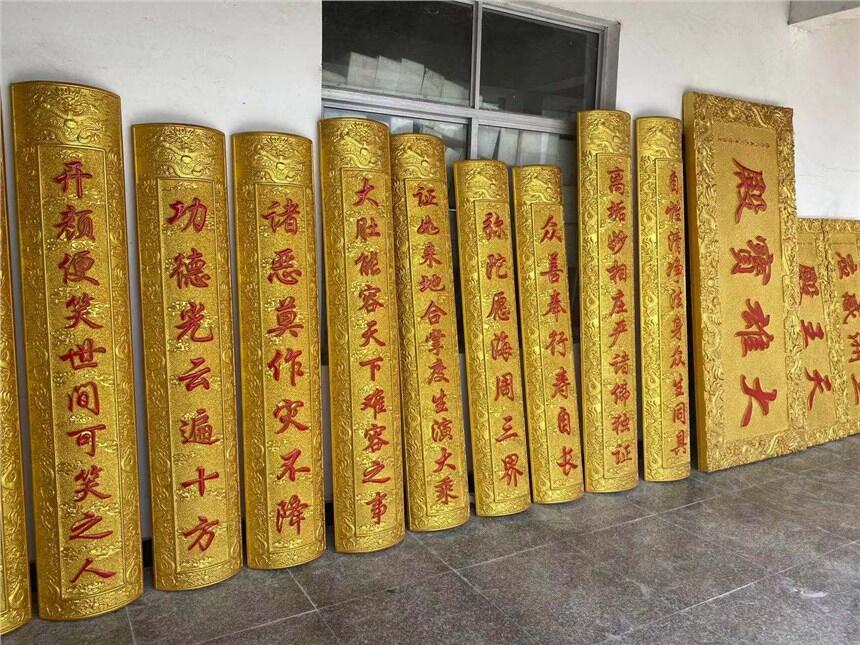 开颜便笑世间可笑之人
功德光云遍十方
诸恶莫作灾不降
大肚能容天下难容之事
证如来地合掌度生演大乘
弥陀愿海周三界
众善奉行寿自长
离垢妙相庄严诸佛独证
自性清净法身众生同具
大雄寳殿
天王殿